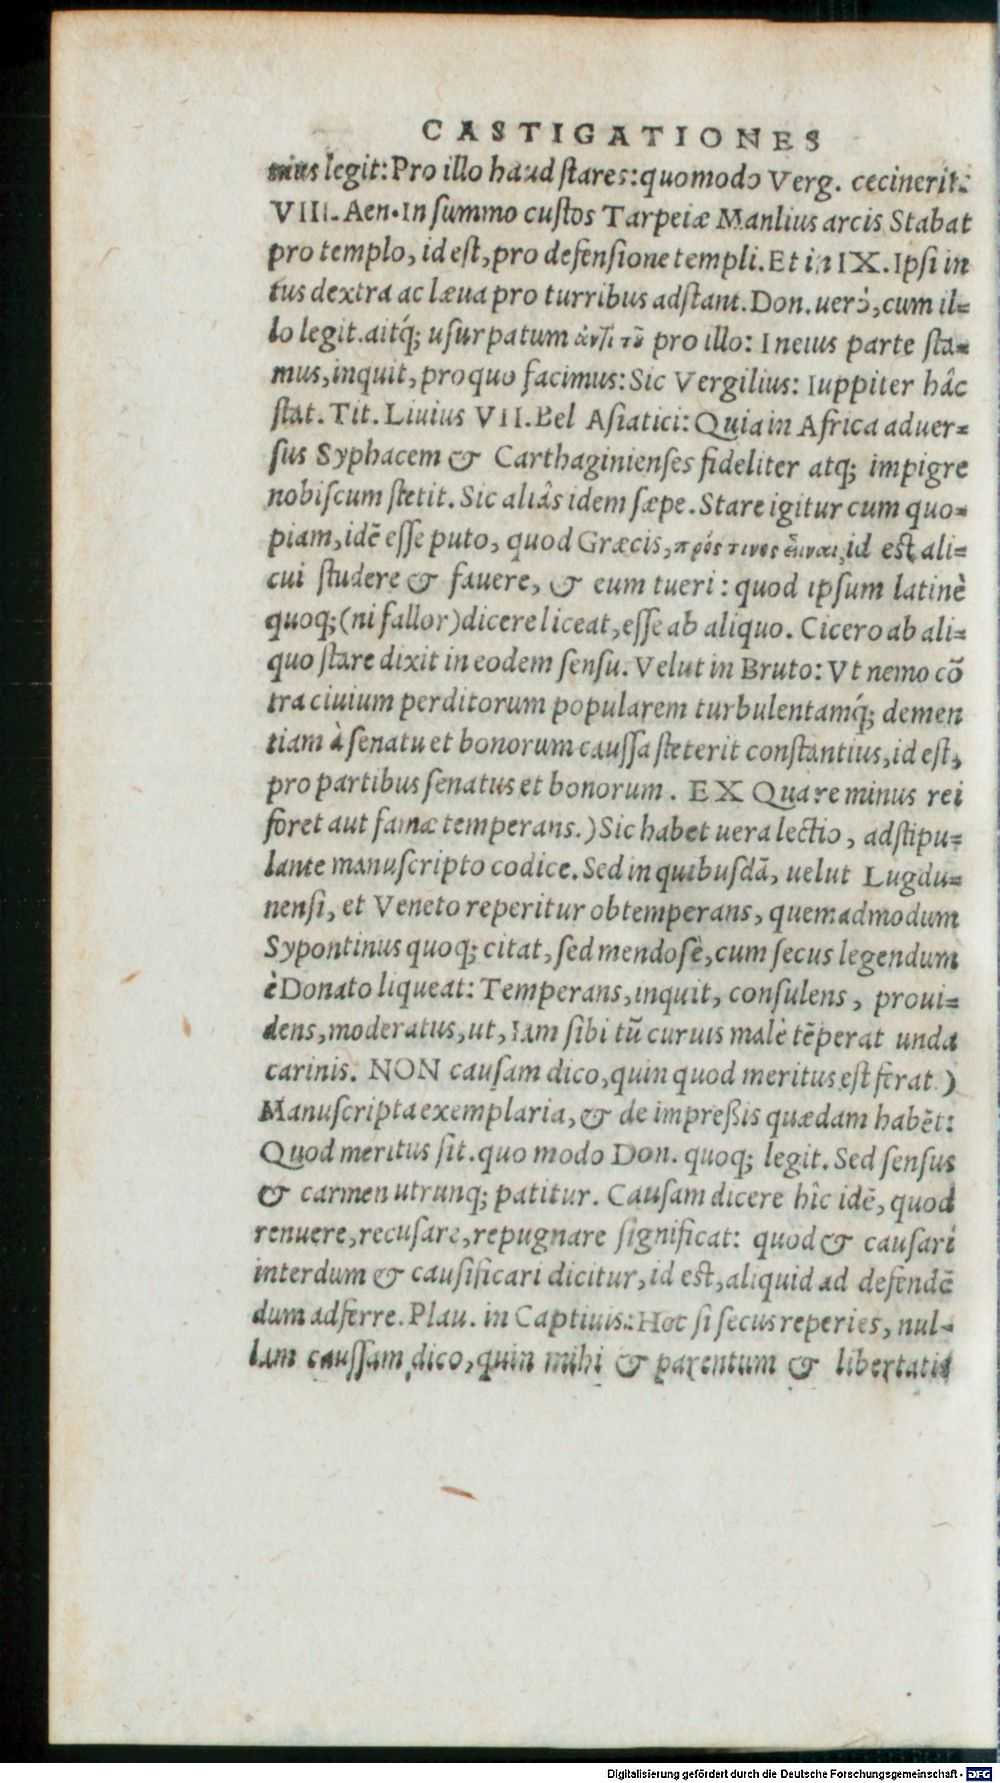 CASTIGATIONES
nius legit: Pro illo haud stares: quomodo Verg. cecinerit:
VIII. Aen. In summo custos Tarpeiæ Manlius arcis Stabat
pro templo, id est, pro defensione templi. Et in IX. Ipsi in
tus dextra ac læua pro turribus adstant. Don. uerò, cum il=
lo legit. aitq́; usurpatum ἀντὶ τῦ pro illo: In eius parte sta=
mus, inquit, pro quo facimus: Sic Vergilius: Iuppiter hâc
stat. Tit. Liuius VII. Bel Asiatici: Quia in Africa aduer=
sus Syphacem & Carthaginienses fideliter atq; impigre
nobiscum stetit. Sic aliâs idem sæpe. Stare igitur cum quo=
piam, idē esse puto, quod Græcis, πρός τινος εἶναι, id est ali=
cui studere & fauere, & eum tueri: quod ipsum latinè
quoq; (ni fallor) dicere liceat, esse ab aliquo. Cicero ab ali=
quo stare dixit in eodem sensu. Velut in Bruto: Vt nemo cō
tra ciuium perditorum popularem turbulentamq́; demen
tiam à senatu et bonorum caussa steterit constantius, id est,
pro partibus senatus et bonorum. EX Qua re minus rei
foret aut famæ temperans.) Sic habet uera lectio, adstipu=
lante manuscripto codice. Sed in quibusdā, uelut Lugdu=
nensi, et Veneto reperitur obtemperans, quemadmodum
Sypontinus quoq; citat, sed mendosè, cum secus legendum
è Donato liqueat: Temperans, inquit, consulens, proui=
dens, moderatus, ut, Iam sibi tū curuis malè tēperat unda
carinis. NON causam dico, quin quod meritus est ferat.)
Manuscripta exemplaria, & de impreßis quædam habēt:
Quod meritus sit. quo modo Don. quoq; legit. Sed sensus
& carmen utrunq; patitur. Causam dicere hîc idē, quod
renuere, recusare, repugnare significat: quod & causari
interdum & causificari dicitur, id est, aliquid ad defendē
dum adferre. Plau. in Captiuis: Hoc si secus reperies, nul-
lam caussam dico, quin mihi & parentum & libertatis
Digitalisierung gefördert durch die Deutsche Forschungsgemeinschaft - DFG